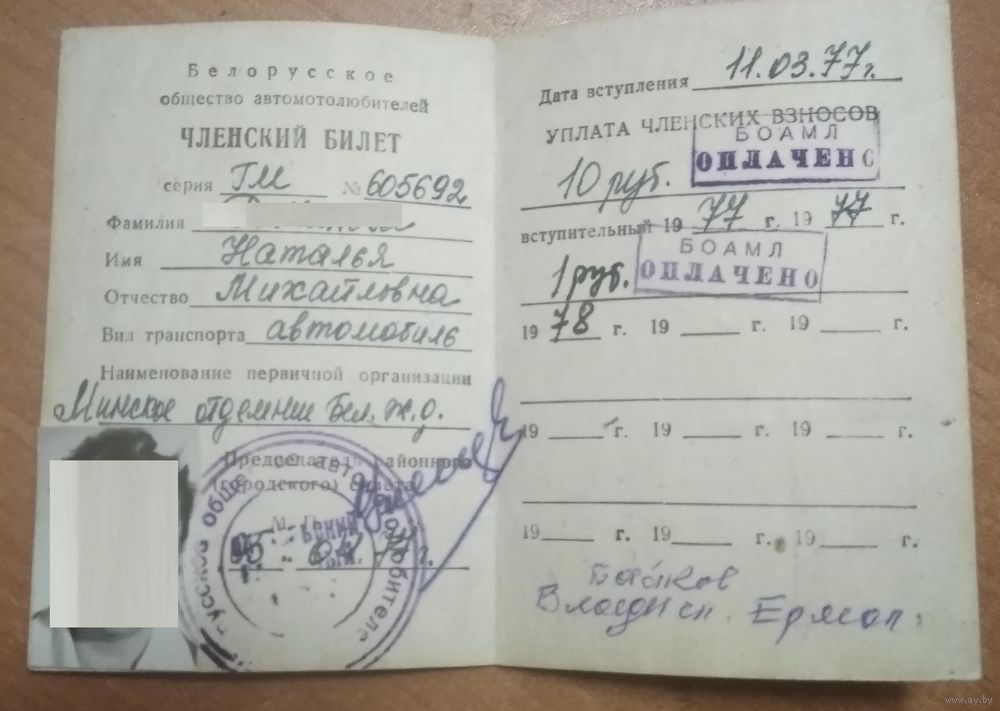 Белорусское
общество автомотолюбителей
ЧЛЕНСКИЙ БИЛЕТ
серия ГМ № 605692
Фамилия
Имя Наталья
Отчество Михайловна
Вид транспорта автомобиль
Наименование первичной организации
Минское отделение Бел. ж.д.
Председатель районного
(городского) совета
М. П.
Дата вступления 11.03.77г.
УПЛАТА ЧЛЕНСКИХ ВЗНОСОВ
БОАМЛ
10 руб. ОПЛАЧЕНО
вступительный 1977 г. 1977 г.
БОАМЛ
1 руб. ОПЛАЧЕНО
1978 г. 19 г. 19 г.
19 г. 19 г. 19 г.
19 г. 19 г. 19 г.
Байков
www.ay.by